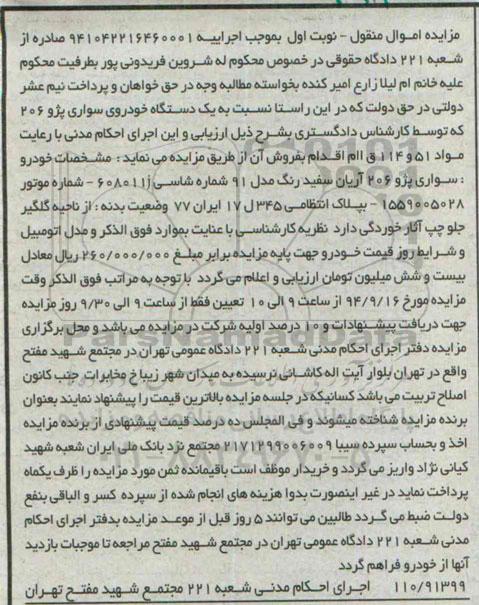 مزایده اموال منقول - نوبت اول بموجب اجراییه ۹۴۱۰۴۲۲۱۶۴۶۰۰۰۱ صادره از
شعبه ۲۲۱ دادگاه حقوقی در خصوص محکوم له شروین فریدونی پور بطرفیت محکوم
علیه خانم ام لیلا زارع امیر کنده بخواسته مطالبه وجه در حق خواهان و پرداخت نیم عشر
دولتی در حق دولت که در این راستا نسبت به یک دستگاه خودروی سواری پژو ۲۰۶
که توسط کارشناس دادگستری بشرح ذیل ارزیابی و این اجرای احکام مدنی با رعایت
مواد ۵۱ و ۱۱۴ ق اام اقدام بفروش آن از طریق مزایده می نماید : مشخصات خودرو
: سواری پژو ۲۰۶ آریان سفید رنگ مدل ۹۱ شماره شاسی ۶۰۸۰۱۱j - شماره موتور
۱۵۵۹۰۰۵۰۲۸ - بپلاک انتظامی ۳۴۵ل۱۷ ایران ۷۷ وضعیت بدنه : از ناحیه گلگیر
جلو چپ آثار خوردگی دارد نظریه کارشناسی با عنایت بموارد فوق الذکر و مدل اتومبیل
و شرایط روز قیمت خودرو جهت پایه مزایده برابر مبلغ ۲۶۰/۰۰۰/۰۰۰ ریال معادل
بیست و شش میلیون تومان ارزیابی و اعلام می گردد با توجه به مراتب فوق الذکر وقت
مزایده مورخ ۹۴/۹/۱۶ از ساعت ۹ الی ۱۰ تعیین فقط از ساعت ۹ الی ۹/۳۰ روز مزایده
جهت دریافت پیشنهادات و ۱۰ درصد اولیه شرکت در مزایده می باشد و محل برگزاری
مزایده دفتر اجرای احکام مدنی شعبه ۲۲۱ دادگاه عمومی تهران در مجتمع شهید مفتح
واقع در تهران بلوار آیت اله کاشانی نرسیده به میدان شهر زیبا خ مخابرات جنب کانون
اصلاح تربیت می باشد کسانیکه در جلسه مزایده بالاترین قیمت را پیشنهاد نمایند بعنوان
برنده مزایده شناخته میشوند و فی المجلس ده درصد قیمت پیشنهادی از برنده مزایده
اخذ و بحساب سپرده سیبا ۲۱۷۱۲۹۹۰۰۶۰۰۹ مجتمع نزد بانک ملی ایران شعبه شهید
کیانی نژاد واریز می گردد و خریدار موظف است باقیمانده ثمن مورد مزایده را ظرف یکماه
پرداخت نماید در غیر اینصورت بدوا هزینه های انجام شده از سپرده کسر و الباقی بنفع
دولت ضبط می گردد طالبین می توانند ۵ روز قبل از موعد مزایده بدفتر اجرای احکام
مدنی شعبه ۲۲۱ دادگاه عمومی تهران در مجتمع شهید مفتح مراجعه تا موجبات بازدید
آنها از خودرو فراهم گردد
۱۱۰/۹۱۳۹۹ اجرای احکام مدنی شعبه ۲۲۱ مجتمع شهید مفتح تهران